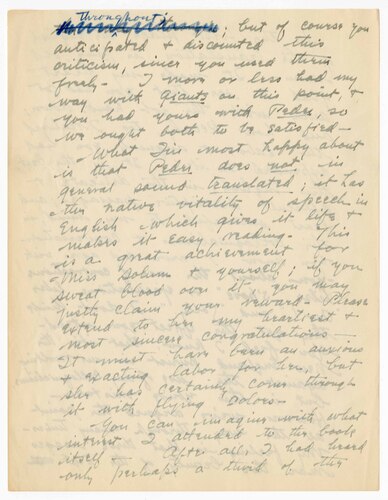 throughout
; but of course you
anticipated & discounted this
criticism, since you used them
freely - I more or less had my
way with Giants on this point &
you had yours with Peder, so
we ought both to be satisfied -
- What I'm most happy about
is that Peder does not in
general sound translated; it has
the native vitality of speech in
English which gives it life &
makes it easy reading - This
is a great achievement for
Miss Solum & yourself; if you
sweat blood over it, you may
justly claim your reward - Please
extend to her my heartiest &
most sincere congratulations -
It must have been an anxious
& exacting labor for her, but
she has certainly come through
it with flying colors -
- You can imagine with what
interest I attended to the book
itself - After all, I had heard
only perhaps a third of the